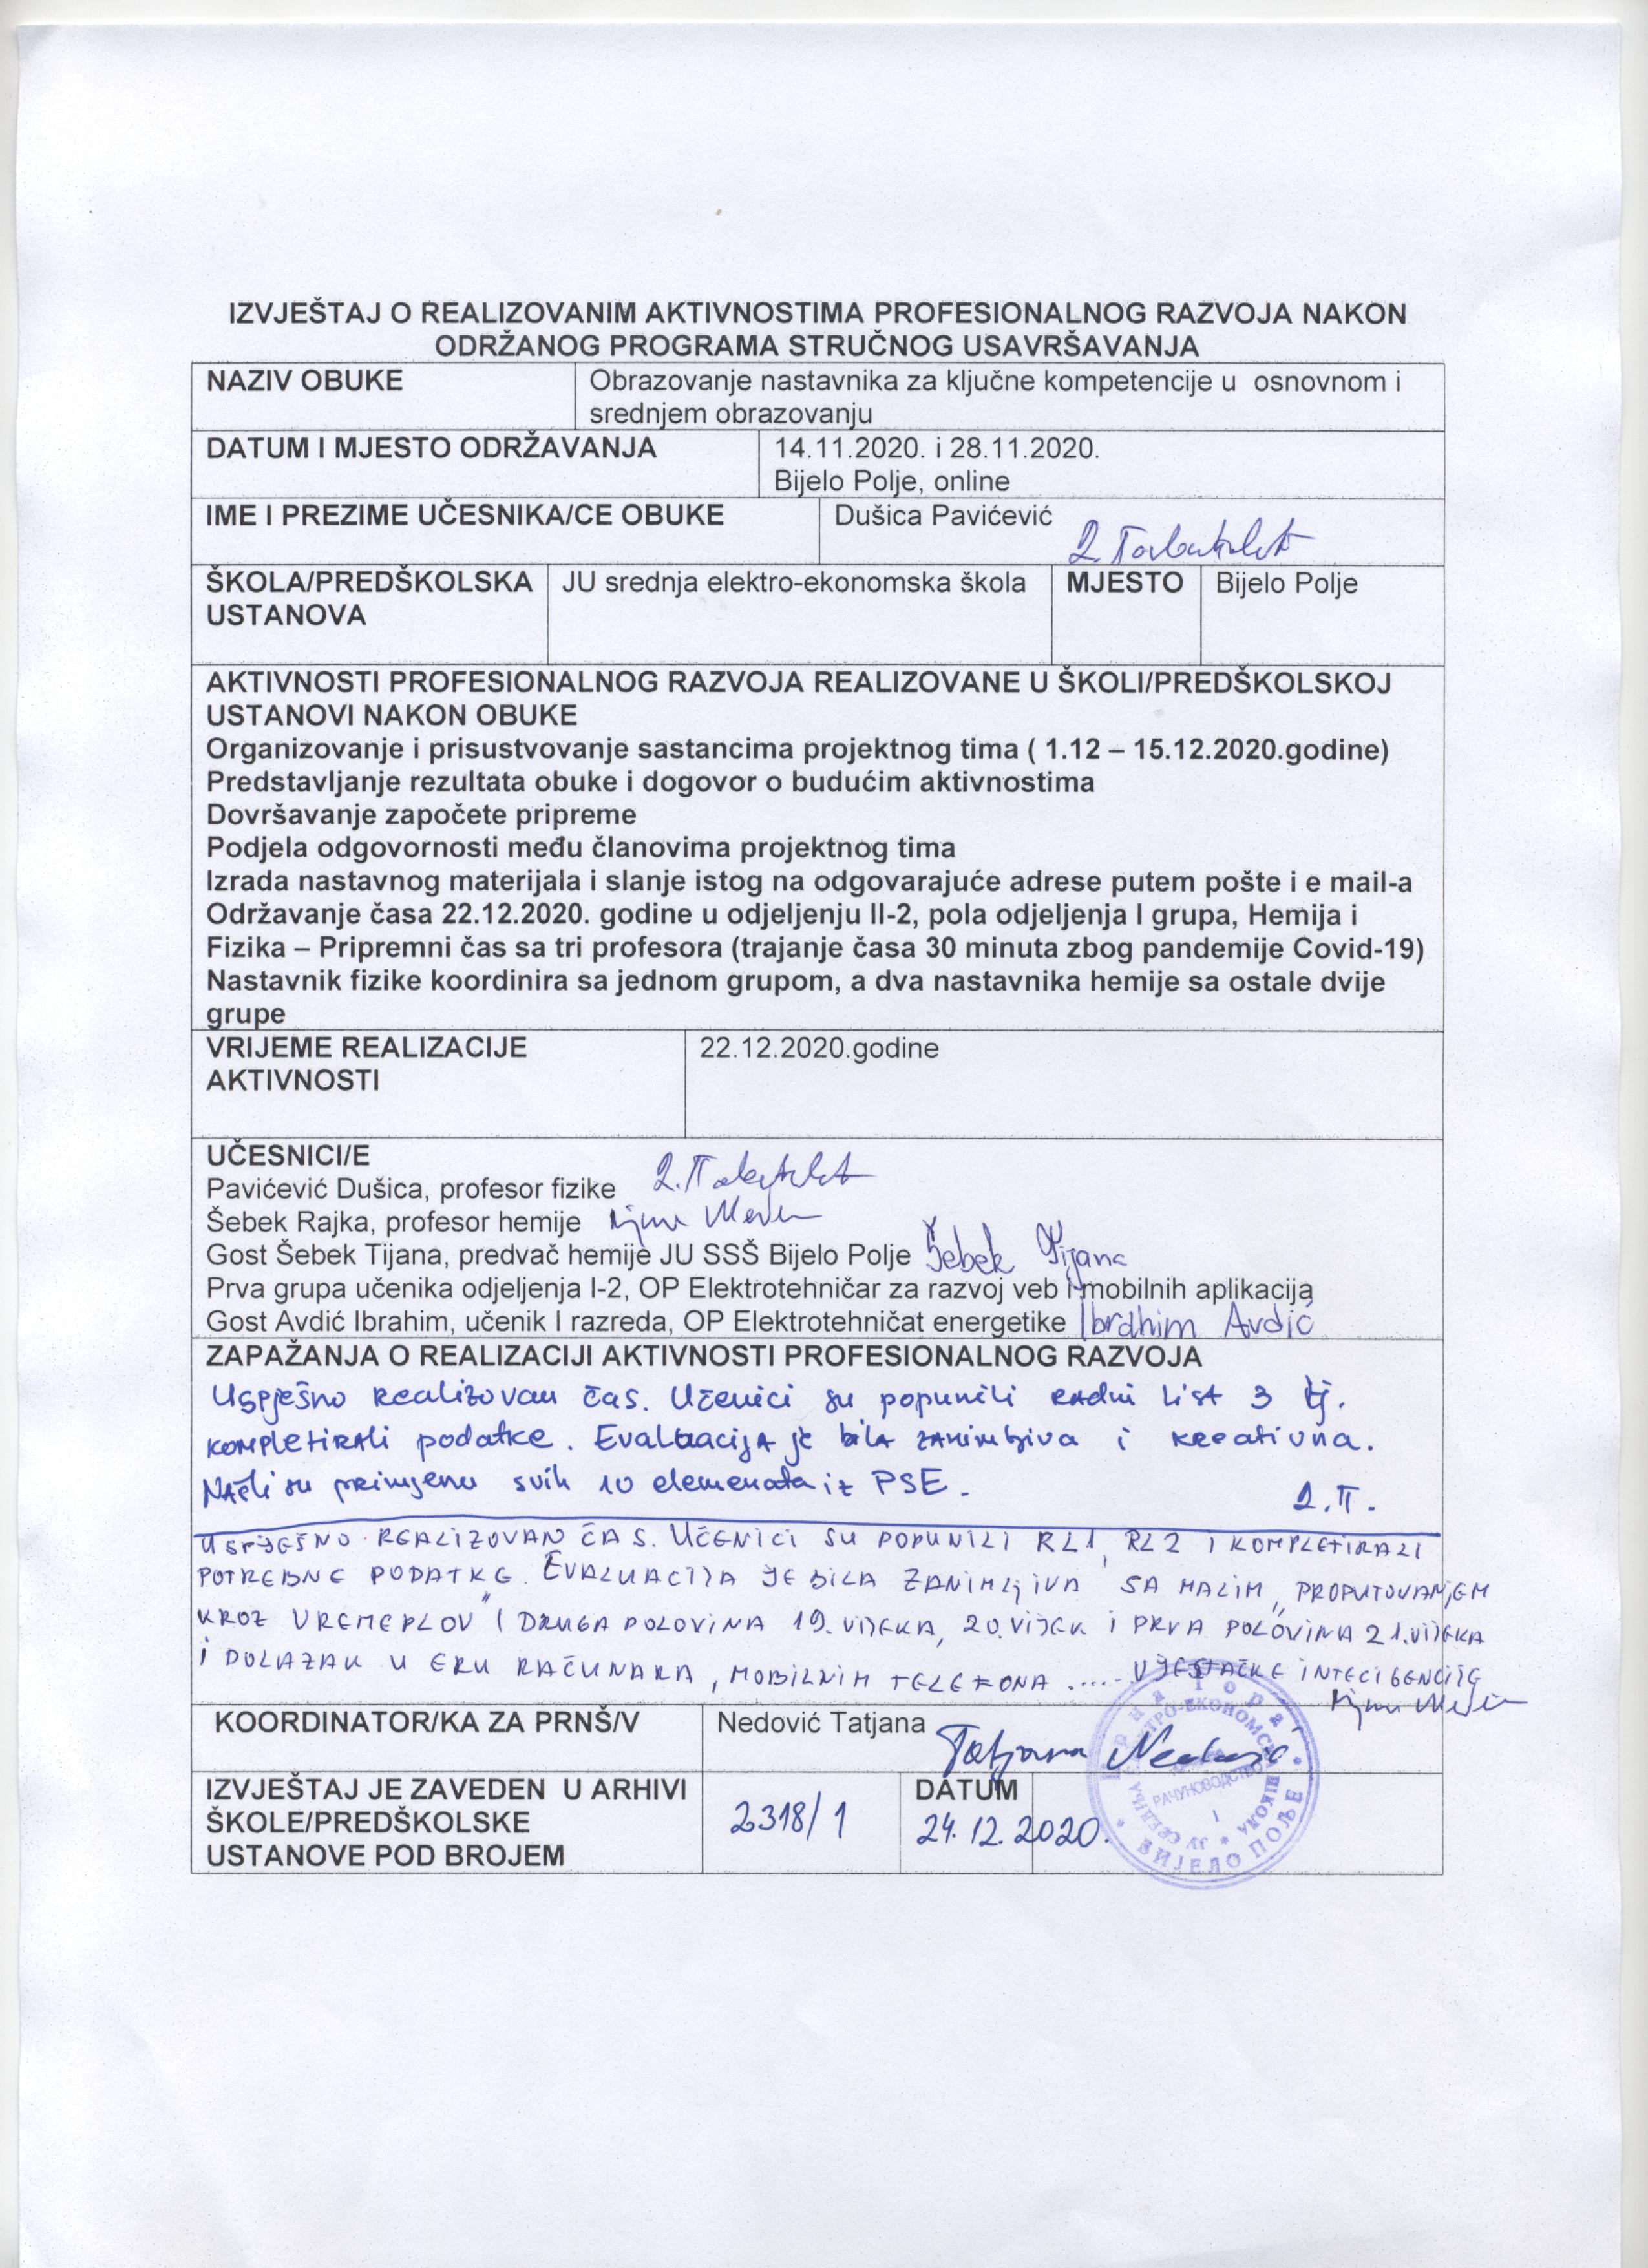 IZVJEŠTAJ O REALIZOVANIM AKTIVNOSTIMA PROFESIONALNOG RAZVOJA NAKON
ODRŽANOG PROGRAMA STRUČNOG USAVRŠAVANJA
NAZIV OBUKE
Obrazovanje nastavnika za ključne kompetencije u osnovnom i
srednjem obrazovanju
DATUM I MJESTO ODRŽAVANJA
14.11.2020. i 28.11.2020.
Bijelo Polje, online
IME I PREZIME UČESNIKA/CE OBUKE
Dušica Pavićević
ŠKOLA/PREDŠKOLSKA
USTANOVA
JU srednja elektro-ekonomska škola
MJESTO
Bijelo Polje
AKTIVNOSTI PROFESIONALNOG RAZVOJA REALIZOVANE U ŠKOLI/PREDŠKOLSKOJ
USTANOVI NAKON OBUKE
Organizovanje i prisustvovanje sastancima projektnog tima ( 1.12 – 15.12.2020.godine)
Predstavljanje rezultata obuke i dogovor o budućim aktivnostima
Dovršavanje započete pripreme
Podjela odgovornosti među članovima projektnog tima
Izrada nastavnog materijala i slanje istog na odgovarajuće adrese putem pošte i e mail-a
Održavanje časa 22.12.2020. godine u odjeljenju II-2, pola odjeljenja I grupa, Hemija i
Fizika – Pripremni čas sa tri profesora (trajanje časa 30 minuta zbog pandemije Covid-19)
Nastavnik fizike koordinira sa jednom grupom, a dva nastavnika hemije sa ostale dvije
grupe
VRIJEME REALIZACIJE
AKTIVNOSTI
22.12.2020.godine
UČESNICI/E
Pavićević Dušica, profesor fizike
Šebek Rajka, profesor hemije
Gost Šebek Tijana, predvač hemije JU SSŠ Bijelo Polje Šebek Tijana
Prva grupa učenika odjeljenja I-2, OP Elektrotehničar za razvoj veb i mobilnih aplikacija
Gost Avdić Ibrahim, učenik I razreda, OP Elektrotehničat energetike Ibrahim Avdić
ZAPAŽANJA O REALIZACIJI AKTIVNOSTI PROFESIONALNOG RAZVOJA
Uspješno realizovan čas. Učenici su popunili radni list 3 tj.
kompletirali podatke. Evaluacija je bila zanimljiva i kreativna.
Našli su primjenu svih 10 elemenata iz PSE.
Д.П.
USPJEŠNO REALIZOVAN ČAS. UČENICI SU POPUNILI RL1, RL2 I KOMPLETIRALI
POTREBNE PODATKE. EVALUACIJA JE BILA ZANIMLJIVA SA MALIM „PROPUTOVANJEM
KROZ VREMEPLOV" (DRUGA POLOVINA 19. VIJEKA, 20. VIJEK I PRVA POLOVINA 21. VIJEKA
I DOLAZAK U ERU RAČUNARA, MOBILNIH TELEFONA ..... VJEŠTAČKE INTELIGENCIJE
KOORDINATOR/KA ZA PRNŠ/V
Nedović Tatjana
Tatjana Nedović
IZVJEŠTAJ JE ZAVEDEN U ARHIVI
ŠKOLE/PREDŠKOLSKE
USTANOVE POD BROJEM
2318/1
DATUM
24.12.2020.
Црна Гора
РАЧУНОВОДСТВО
I
БИЈЕЛО ПОЉЕ